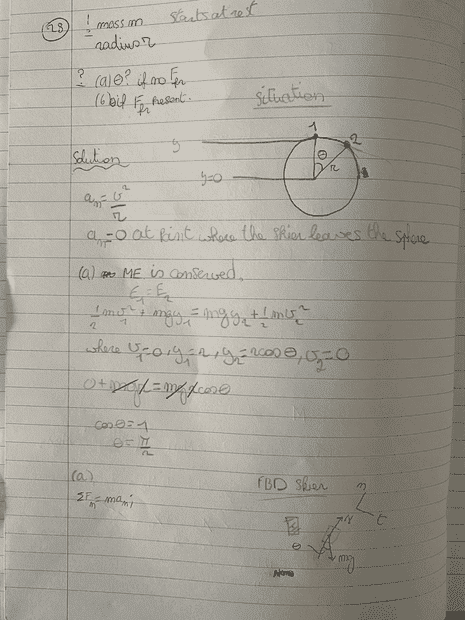 28
! mass m starts at rest
radius r
? (a) θ? if no Ffr
(b) if Ffr present.
situation
1
2
θ
r
y
Solution
y=0
an = v²/r
an=0 at point where the skier leaves the sphere
(a) ME is conserved.
E1 = E2
1/2 mv1² + mgy1 = mgy2 + 1/2 mv2²
where v1=0, y1=r, y2=rcosθ, v2=0
0+mgr=mgrcosθ
cosθ=1
(a)
FBD skier
n
t
ΣFn=man;
N
θ
mg